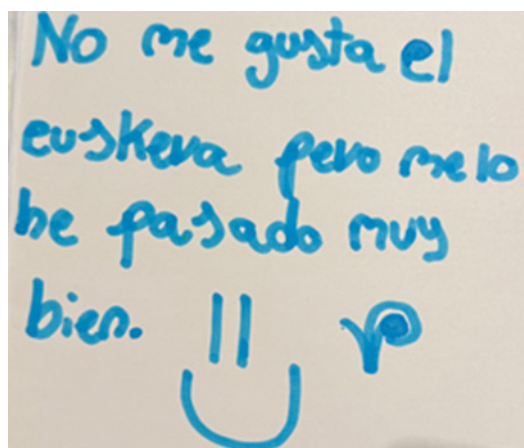 No me gusta el
euskera pero melo
he pasado muy
bien.